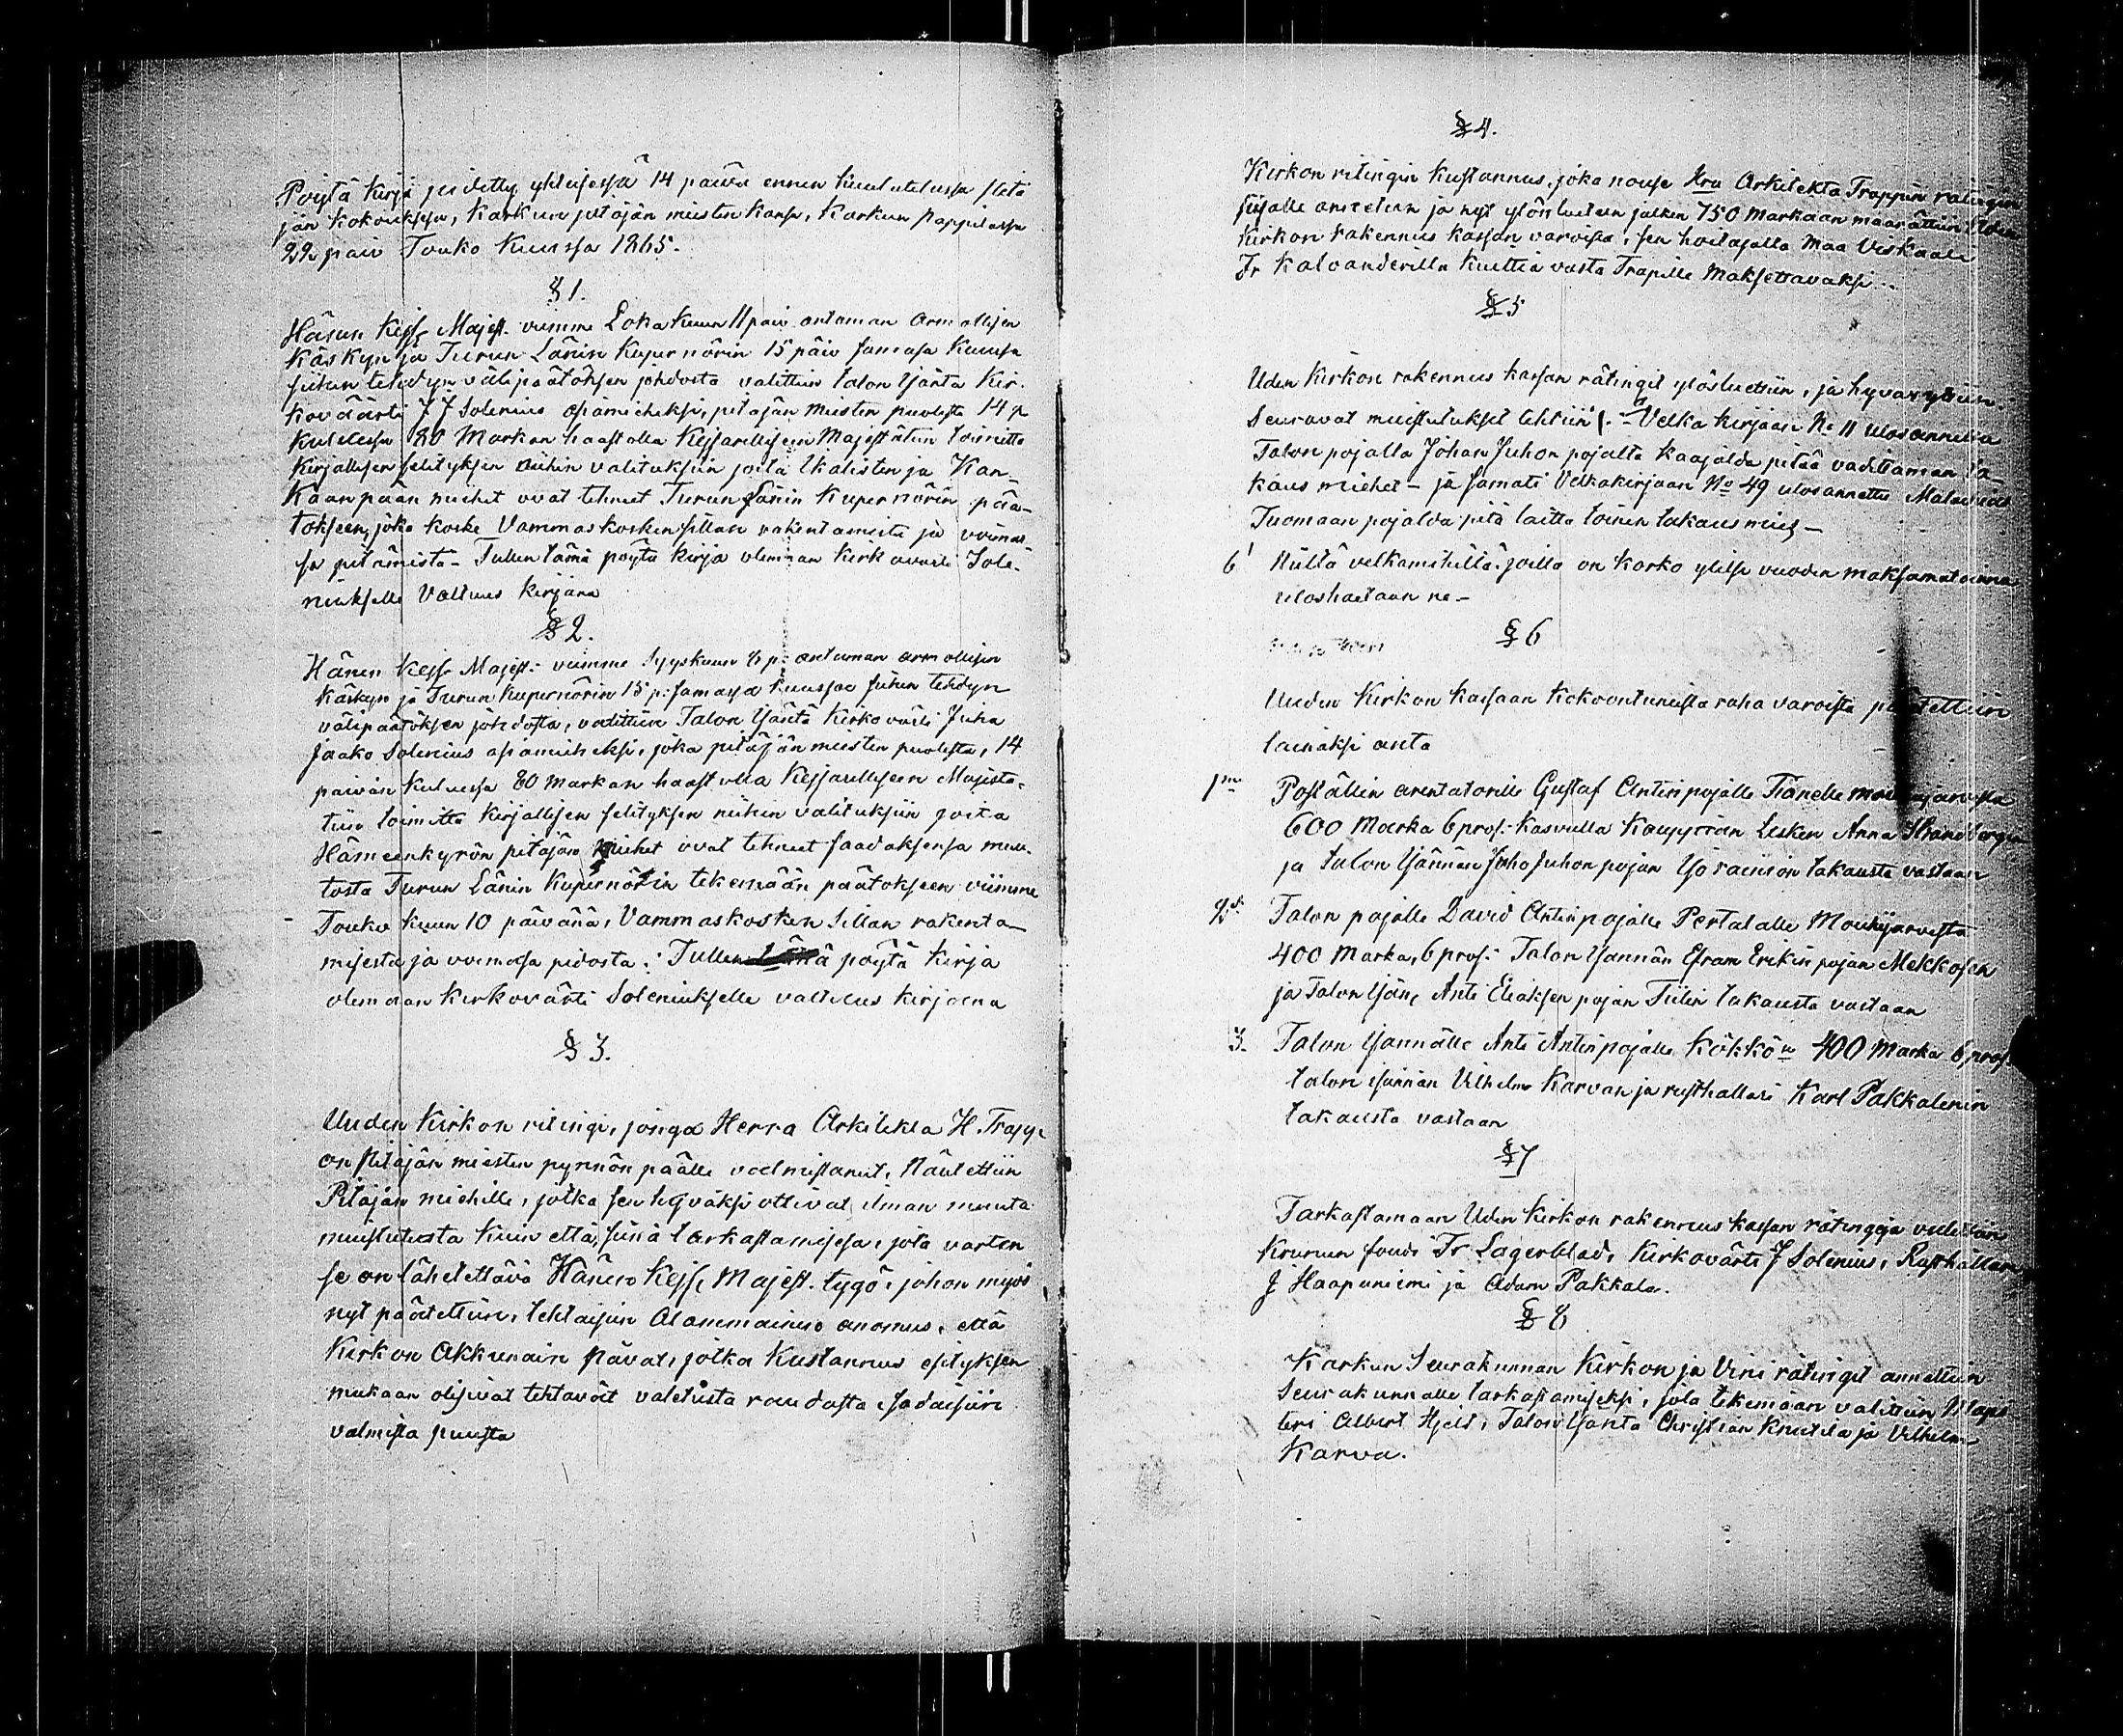 Pöytä Kirja pidetty yhteisessä 14 päivä ennen kuulutelussa Pitä
jän Kokouksesa, Karkun pitäjän miesten kansa, Karkun Pappilassa
22 päiv Touko Kuussa 1865.
§ 1.
Hänen Keiss Majest. viimme Loka Kuun 11 päiv antaman armollisen
Käskyn ja Turun Länin Kupernörin 15 päiv samasa Kuusa
siihen tehdyn välipäätöksen johdosta valittiin talon Isäntä Kir-
kovääsrti J J Solenius asiamieheksi, pitäjän miesten puolesta 14 p
kuluessa 80 Markan haastolla Keissarillisen Majestätin toimitta
Kirjallisen selityksen niihin valituksiin joita Ikalisten ja Kan-
kaanpään miehet ovat tehneet Turun Länin Kupernörin pää-
tökseen, joka koske Vammaskosken sillan rakentamista ja voimas-
sa pitämistä - Tullen tämä pöytä kirja oleman Kirkovärti Sole-
niukselle Valtuus Kirjana
§ 2.
Hänen Keiss Majest: viimme Syyskuun p: antaman armollisen
Käskyn ja Turun Kupernörin 15 p: samassa kuussa siihen tehdyn
välipäätöksen johdosta, valittiin Talon Isäntä Kirkovärti Juha
Jaako Solenius asiamieheksi, joka pitäjän miesten puolesta, 14
päivän kuluessa 80 markan haastolla Keissarilliseen Majestä-
tiin toimitta Kirjallisen selityksen niihin valituksiin joita
Hämeenkyrön pitäjän miehet ovat tehneet saadaksensa muu-
tosta Turun Länin Kupernörin tekemään päätökseen viimme
Touko kuun 10 päivänä, Vammaskosken Sillan rakenta-
misesta ja voimasa pidosta. Tullen tämä pöytä kirja
olemaan Kirkovärti Soleniukselle valtuus kirjana
§ 3.
Uuden Kirkon ritingi, jonga Herra Arkitekta H. Trapp
on Pitäjän miesten pynnön päälle valmistanut, Näutettiin
Pitäjän miehille, jotka sen hyväksi ottivat ilman muuta
muistutusta kuin että, siinä tarkastamisesa, jota varten
se on lähetettävä Hänen Keiss Majest. tygö, johon myös
nyt päätettiin, tehtäisiin Alammainen anomus, että
Kirkon Akkunain Pävat, jotka Kustannus esityksen
mukaan olisivat tehtävät valetusta raudasta, sadaisiin
valmista puusta
§ 4.
Kirkon ritingin kustannus, joka nouse Hra Arkitekta Trappin rätingin
siialle annetun ja nyt ylösluetun jälken 750 Markaan maarättiin Uden
Kirkon rakennus kassan varoista, sen hoitajalla Maa Viskaali
Fr Kalvanderilla kuittia vasta Trapille Maksettavaksi.
§ 5
Uden Kirkon rakennus kassan rätingit ylösluettiin, ja hyvaxyttiin.
Seuravat muistutukset tehtiin 1. a Velka kirjaan No 11 ulosannettu
Talon pojalla Johan Juhon pojalta Kaajalda pitää vadittaman ta-
kaus miehet - ja samati Velkakirjaan No 49 ulosannettu
Tuomaan pojalda pitä laitta toinen takaus mies -
b Niiltä velkamiehiltä, joilla on korko ylitse vuoden maksamatoinna
uloshaetaan ne -
§ 6
Uuden Kirkon Kassaan Kokoontuneista raha varoista päätettiin
lainaksi anta
1mo Poställin arentatorille Gustaf Antinpojalle Tianelle
600 Marka 6 pros: kasvulla Kauppian Lesken Anna Strandbergin
ja talon Isännän Juho Juhon pojan Iso takausta vastaan
2do Talon pojalle David Antinpojalle Pertalalle Mouhijarvesta
400 Marka, 6 pros: Talon Isannän Efram Erikin pojan Mekkosen
ja Talon Isän, Anti Eliaksen pojan Tiilin takausta vastaan
3. Talon Isannälle Anti Antinpojalle Kökkön 400 Marka 6 pros
talon isännän Vilhelm Karvan ja rusthallari Karl Pakkalenin
takausta vastaan
§ 7
Tarkastamaan Uden Kirkon rakennus kassan rätingejä
Krunun foudi Fr. Lagerblad, Kirkovärti J Solenius, Rusthallari
J Haapaniemi ja Adam Pakkala.
§ 8
Karkun Seurakunnan Kirkon ja Vini rätingit annettiin
Seurakunnalle tarkastamiseksi, jota tekemään valittiin Maps
teri Albert Hjelt, Talon Isanta Christian Knuutila ja Vilhelm
Karva.